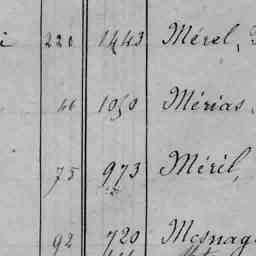 220 1443 Mérel,
1050 Mérias,
75 973 Méril,
92 720 Mesnag